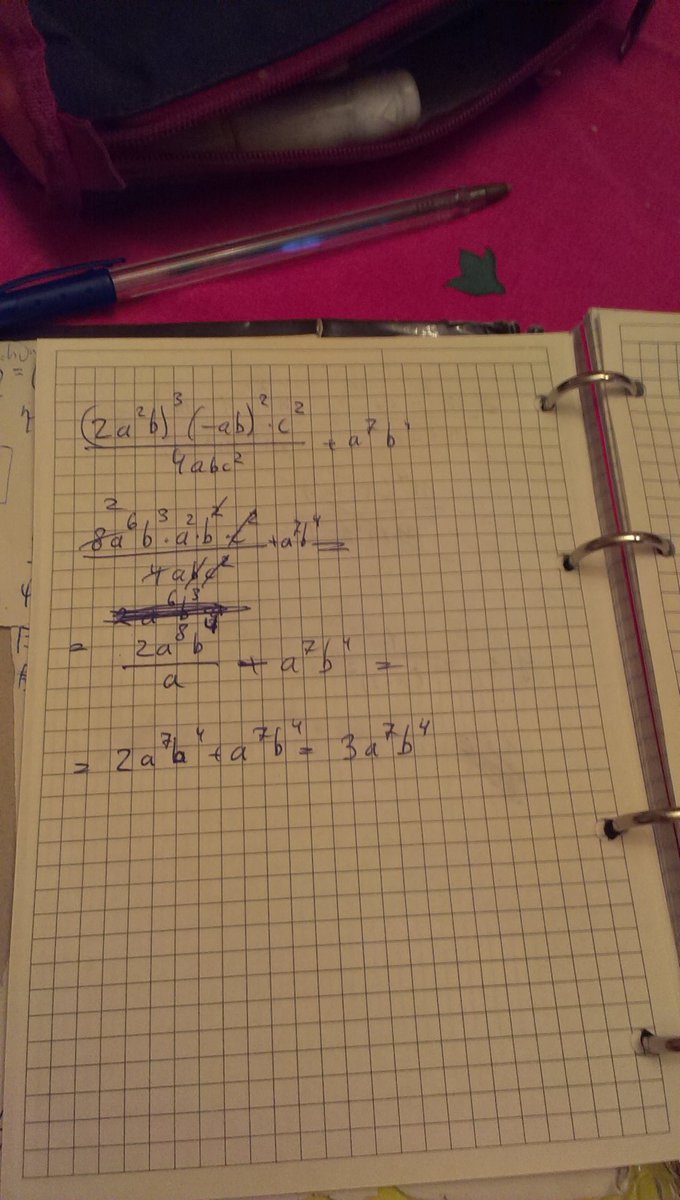 (2a²b)³ (-ab)²·c²
4abc²
+ a⁷b⁴
2
8a⁶b³·a²·b²·c²
4abc²
+a⁷b⁴=
= 2a⁸b⁴
a
+ a⁷b⁴ =
= 2a⁷b⁴ + a⁷b⁴ = 3a⁷b⁴